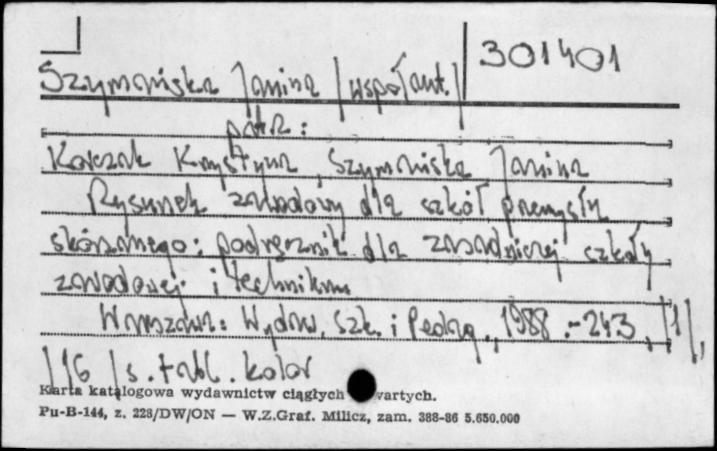 301401
Szymańska Janina /współaut./
patrz:
Korczak Krystyna, Szymańska Janina
Rysunek zawodowy dla szkół przemysłu
skórzanego: podręcznik dla zasadniczej szkoły
zawodowej i technikum
Warszawa: Wydaw. Szk. i Pedag., 1988.-243, /1/,
/16/ s. tabl. kolor
Karta katalogowa wydawnictw ciągłych wartych.
Pu-B-144, z. 228/DW/ON — W.Z.Graf. Milicz, zam. 388-86 5.650.000